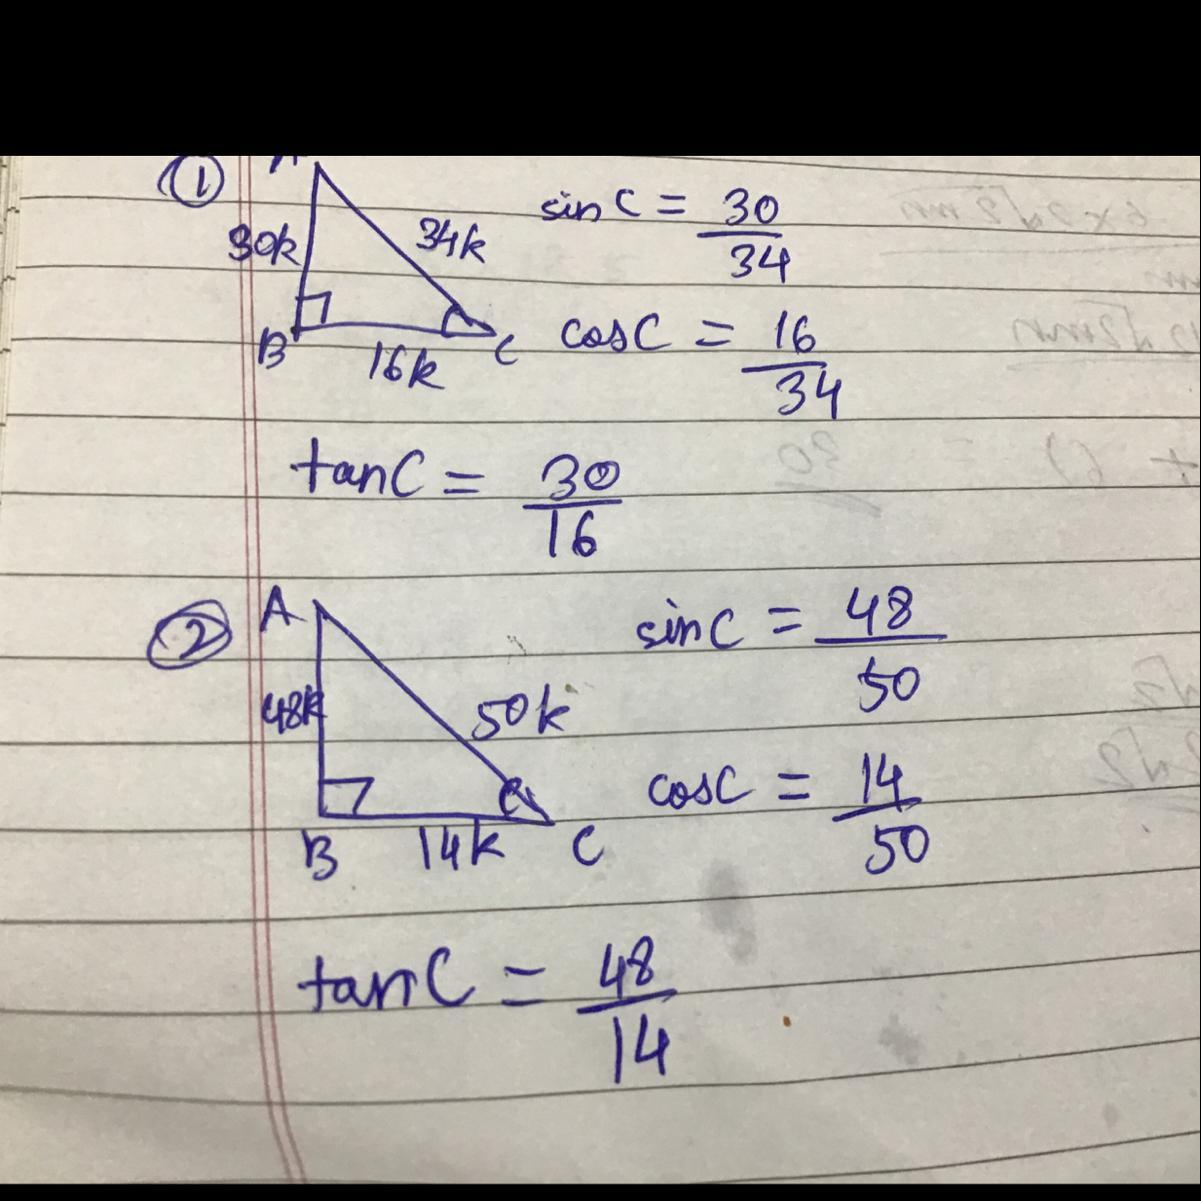 ①
30k
34k
B
16k
C
sin C = 30/34
cos C = 16/34
tan C = 30/16
②
A
48k
50k
B
14k
C
sin C = 48/50
cos C = 14/50
tan C = 48/14